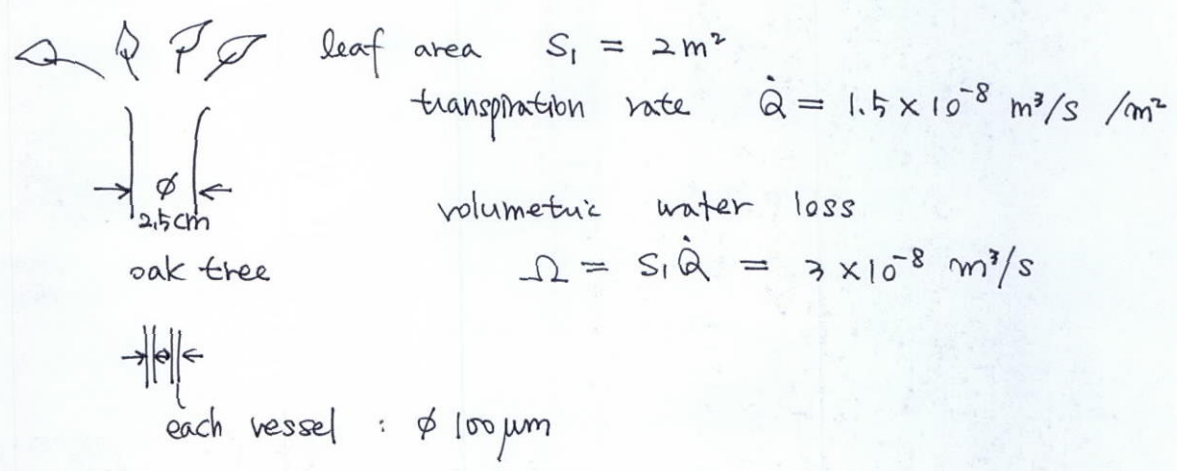 leaf area S₁ = 2 m²
transpiration rate Q̇ = 1.5 × 10⁻⁸ m³/s /m²
ϕ
2.5cm
volumetric water loss
oak tree
Ω = S₁Q̇ = 3 × 10⁻⁸ m³/s
each vessel : ϕ 100 μm